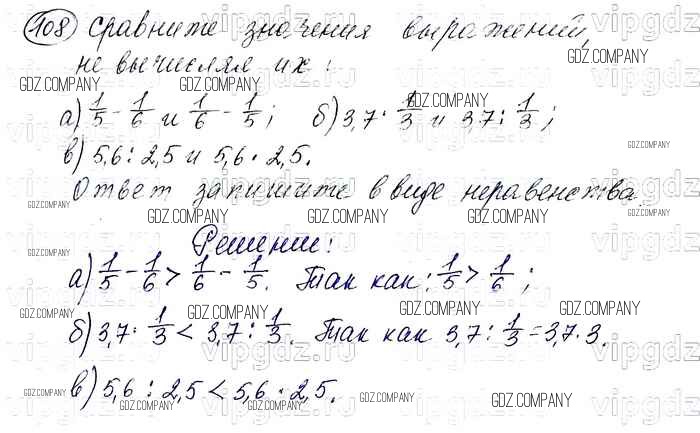 108 Сравните значения выражений,
не вычисляя их:
а) 1/5 - 1/6 и 1/6 - 1/5; б) 3,7 · 1/3 и 3,7 : 1/3;
в) 5,6 : 2,5 и 5,6 · 2,5.
Ответ запишите в виде неравенства.
Решение:
а) 1/5 - 1/6 > 1/6 - 1/5. Так как: 1/5 > 1/6;
б) 3,7 · 1/3 < 3,7 : 1/3. Так как 3,7 : 1/3 = 3,7 · 3.
в) 5,6 : 2,5 < 5,6 · 2,5.
GDZ.COMPANY
vipgdz.ru